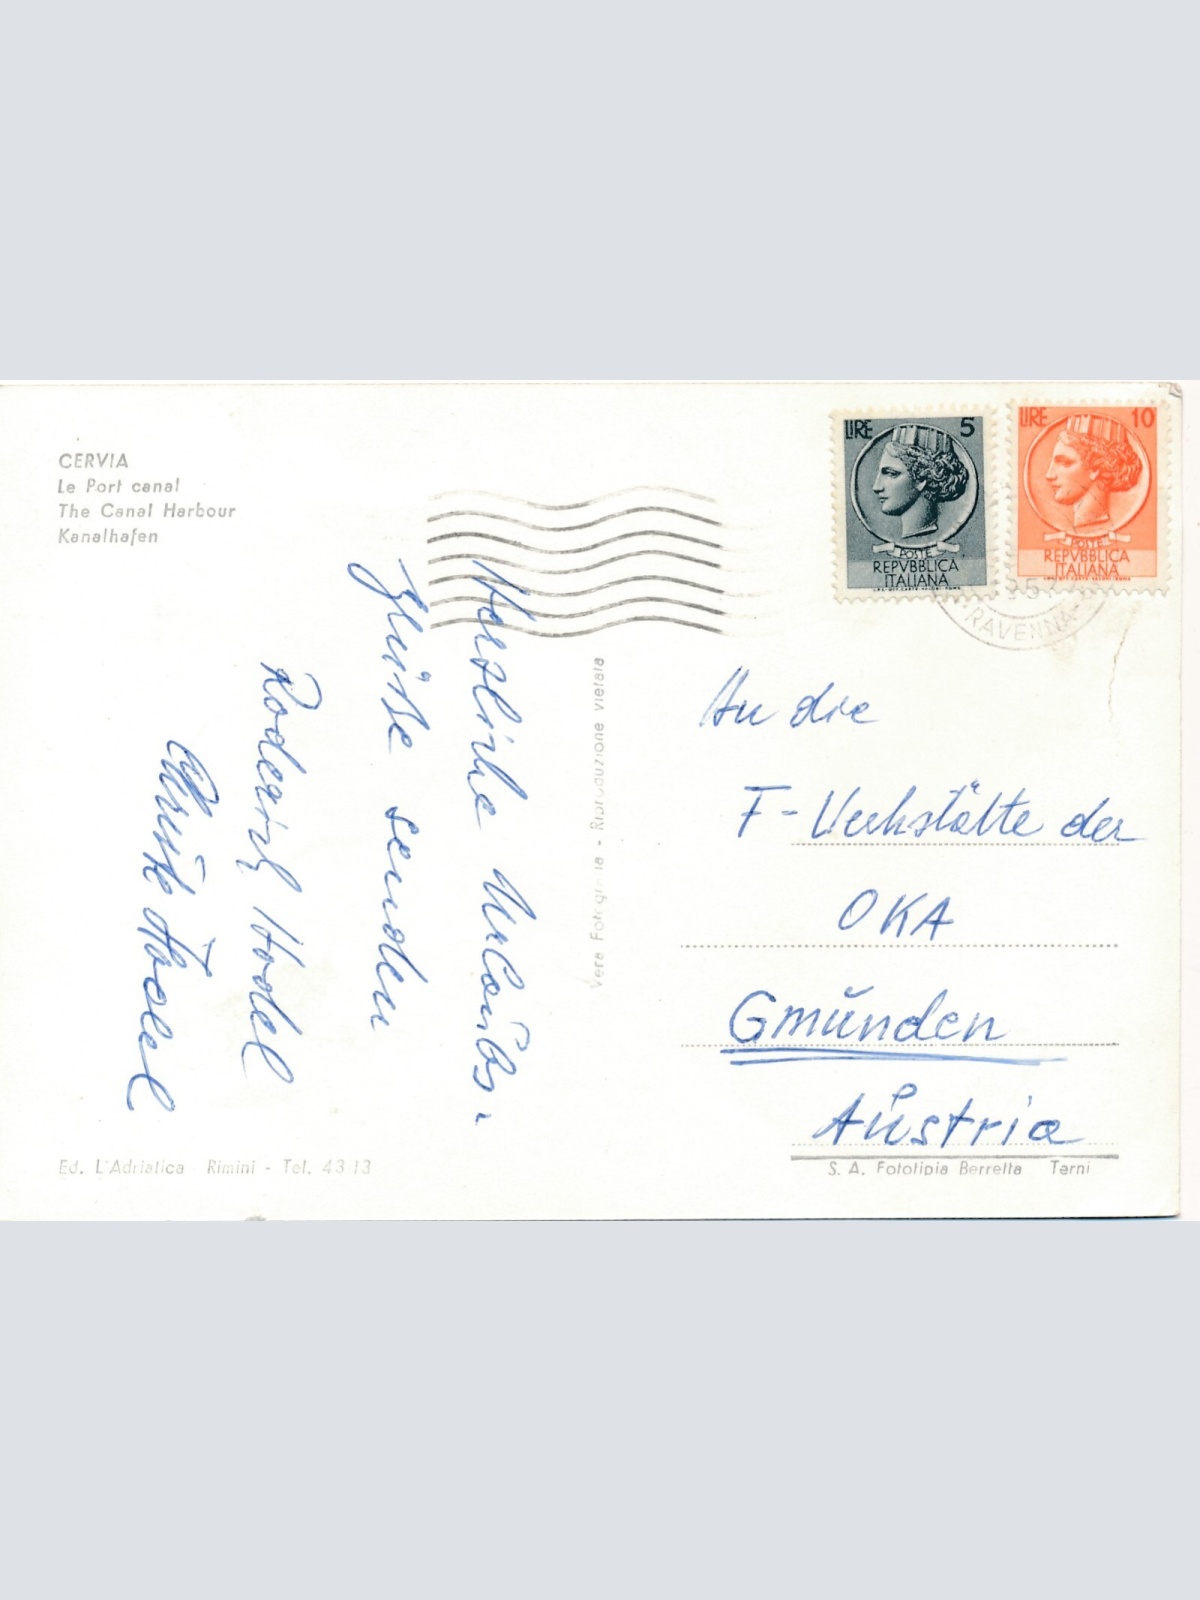 CERVIA
Le Port canal
The Canal Harbour
Kanalhafen
LIRE 5
POSTE
REPVBBLICA
ITALIANA
LIRE 10
POSTE
REPVBBLICA
ITALIANA
RAVENNA
Herzliche Urlaubs-
grüße senden
Hodel
Vera Fotografia - Riproduzione vietata
An die
F-Werkstätte der
OKA
Gmünden
Austria
Ed. L'Adriatica Rimini - Tel. 43-13
S. A. Fototipia Berretta Terni